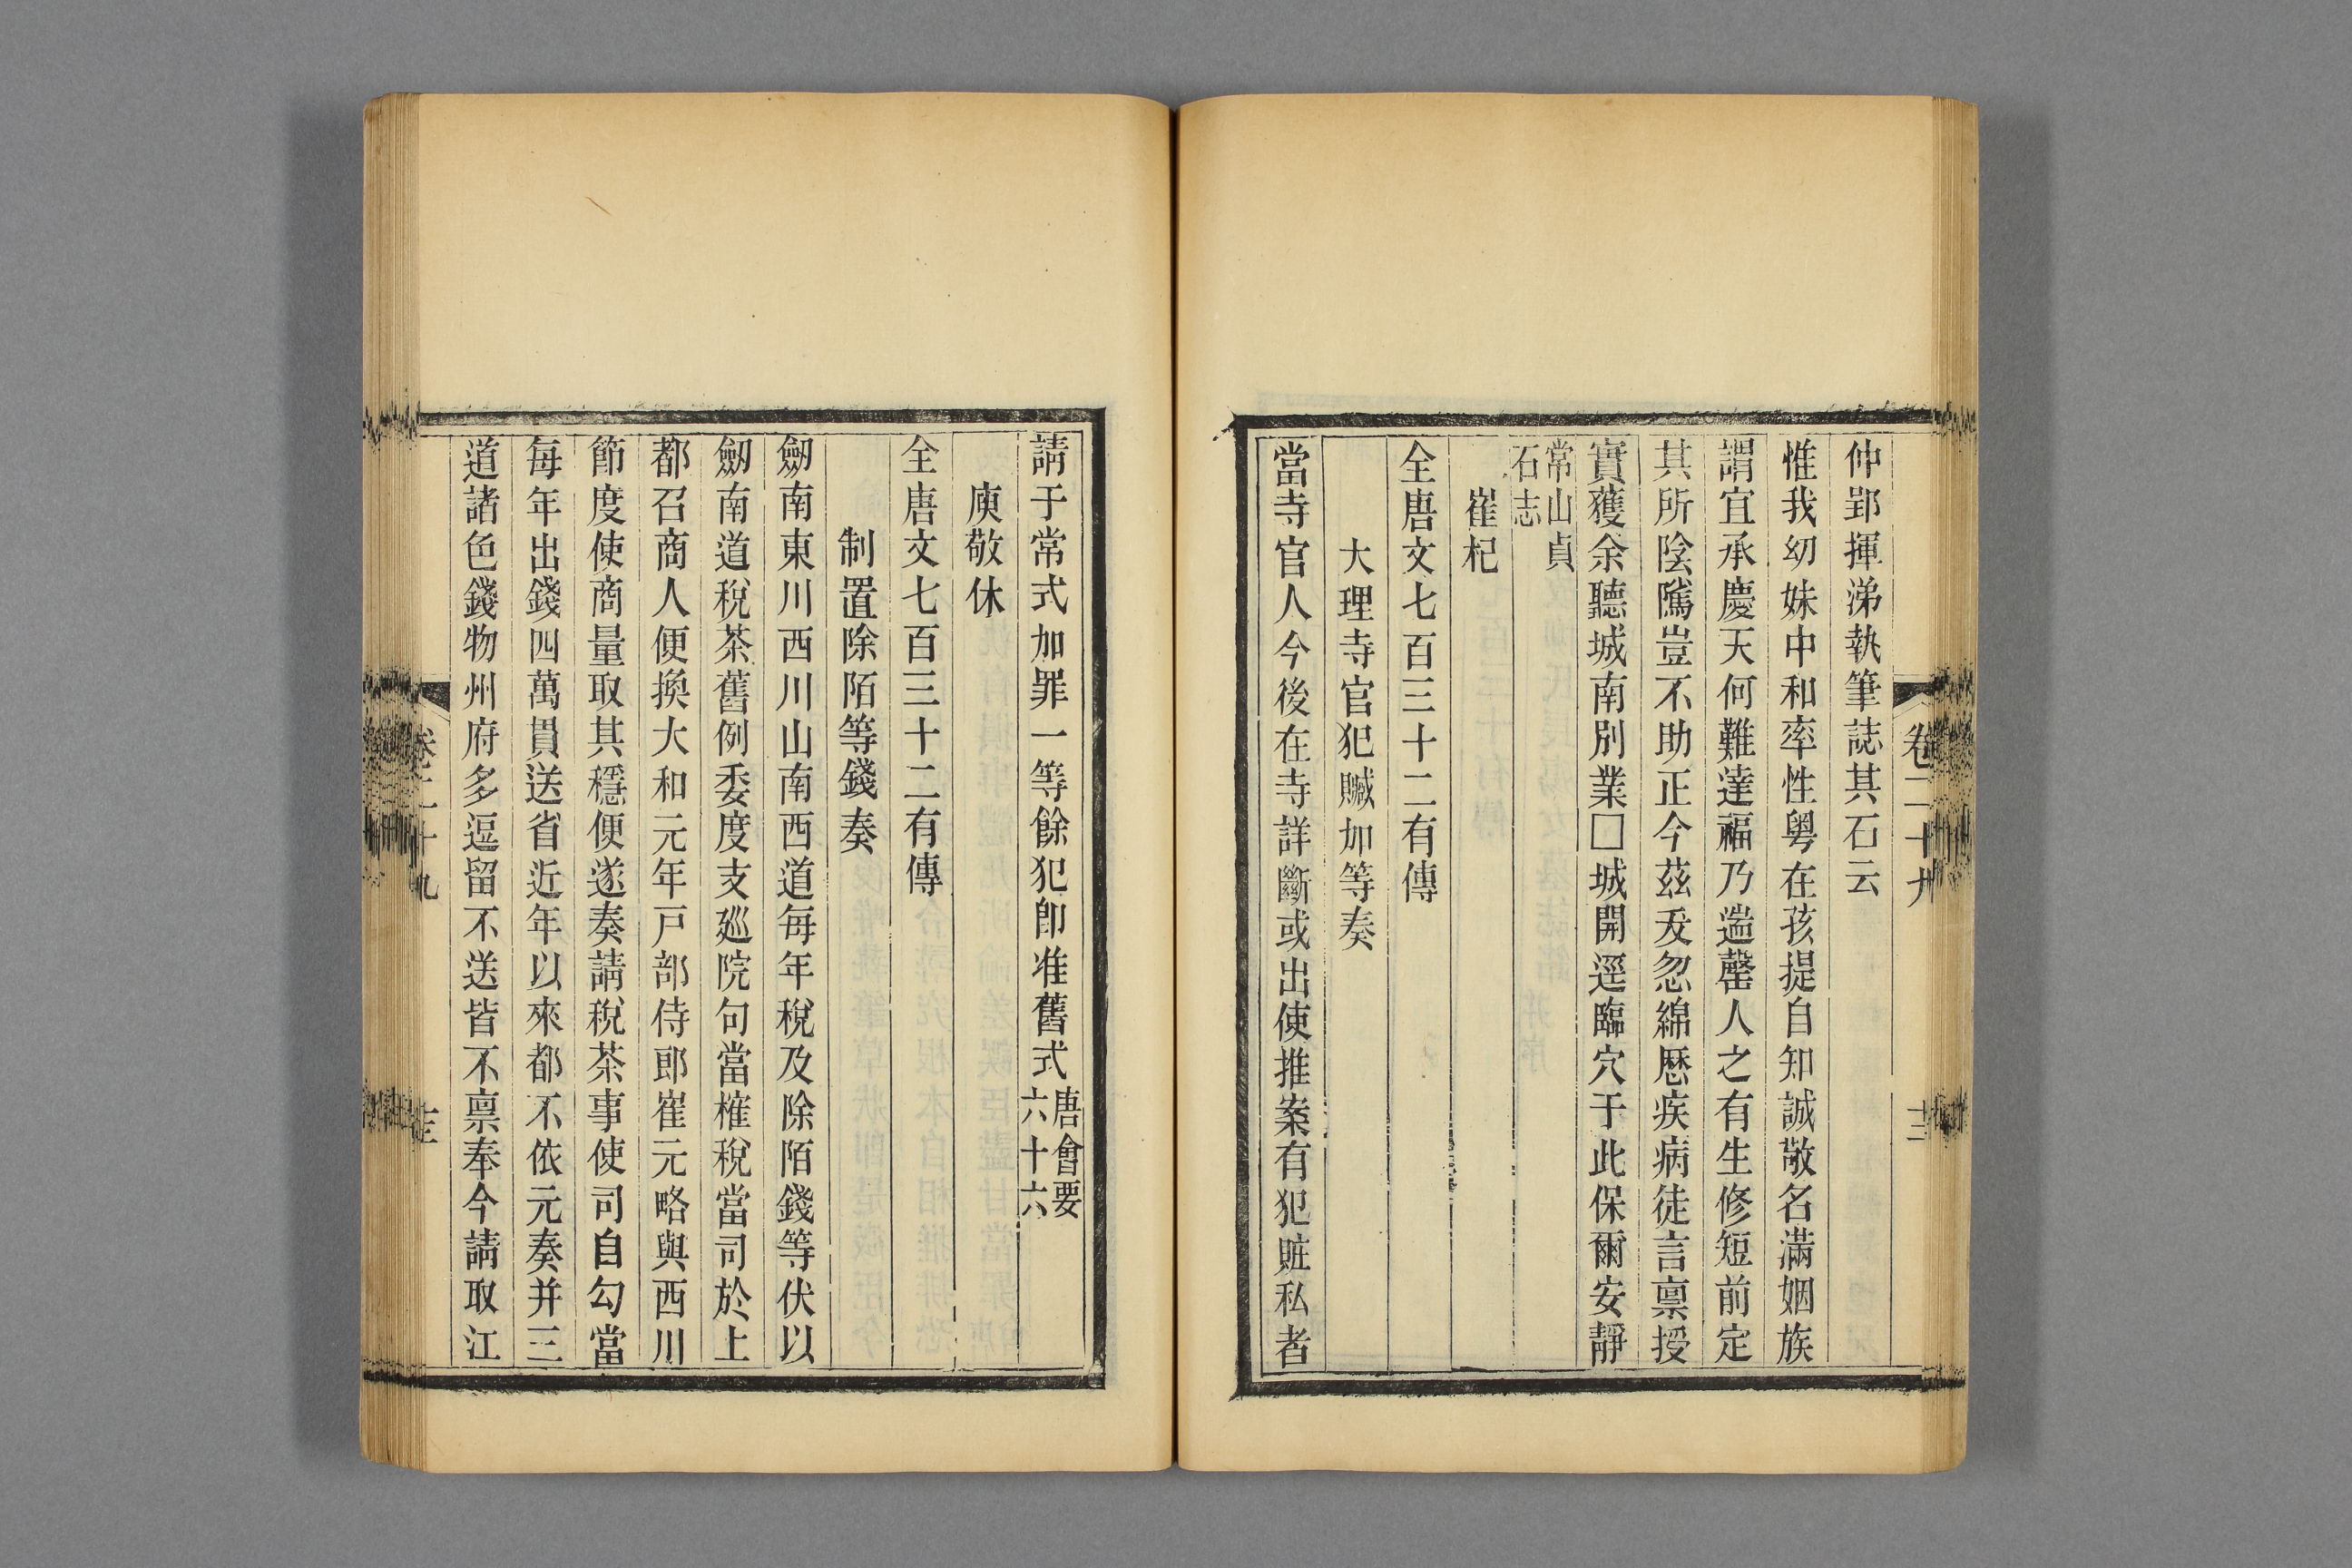 仲郢揮涕執筆誌其石云
惟我幼妹中和率性粤在孩提自知誠敬名滿姻族
謂宜承慶天何難達福乃遄罄人之有生修短前定
其所陰隲豈不助正今茲忽綿曆疾病徒言禀授
實獲余聽城南別業□城開逕臨穴于此保爾安靜
常山貞
石志
崔杞
全唐文七百三十二有傳
大理寺官犯贓加等奏
當寺官人今後在寺詳斷或出使推案有犯贓私者
卷二十九
請于常式加罪一等餘犯卽准舊式唐會要
六十六
庾敬休
全唐文七百三十二有傳
制置除陌等錢奏
劒南東川西川山南西道每年稅及除陌錢等伏以
劒南道稅茶舊例委度支廵院句當榷稅當司於上
都召商人便換大和元年戸部侍郎崔元略與西川
節度使商量取其穩便遂奏請稅茶事使司自勾當
每年出錢四萬貫送省近年以來都不依元奏并三
道諸色錢物州府多逗留不送皆不禀奉今請取江